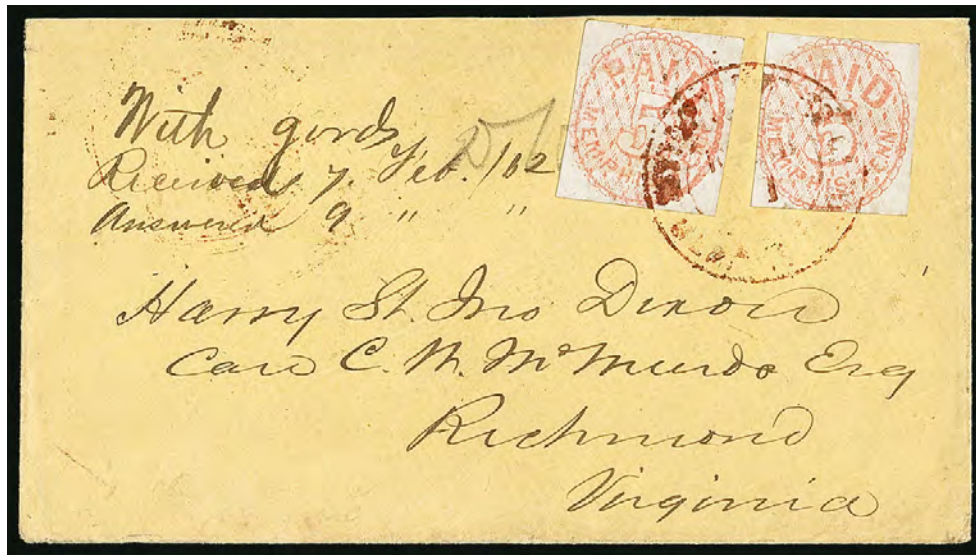 With goods
Received 7. Feb./62
Answered 9 " "
PAID 5 MEMPHIS
PAID 5 MEMPHIS, TENN
Harry St. Jno Dixon
Care C. W. McMurdo Esq
Richmond
Virginia